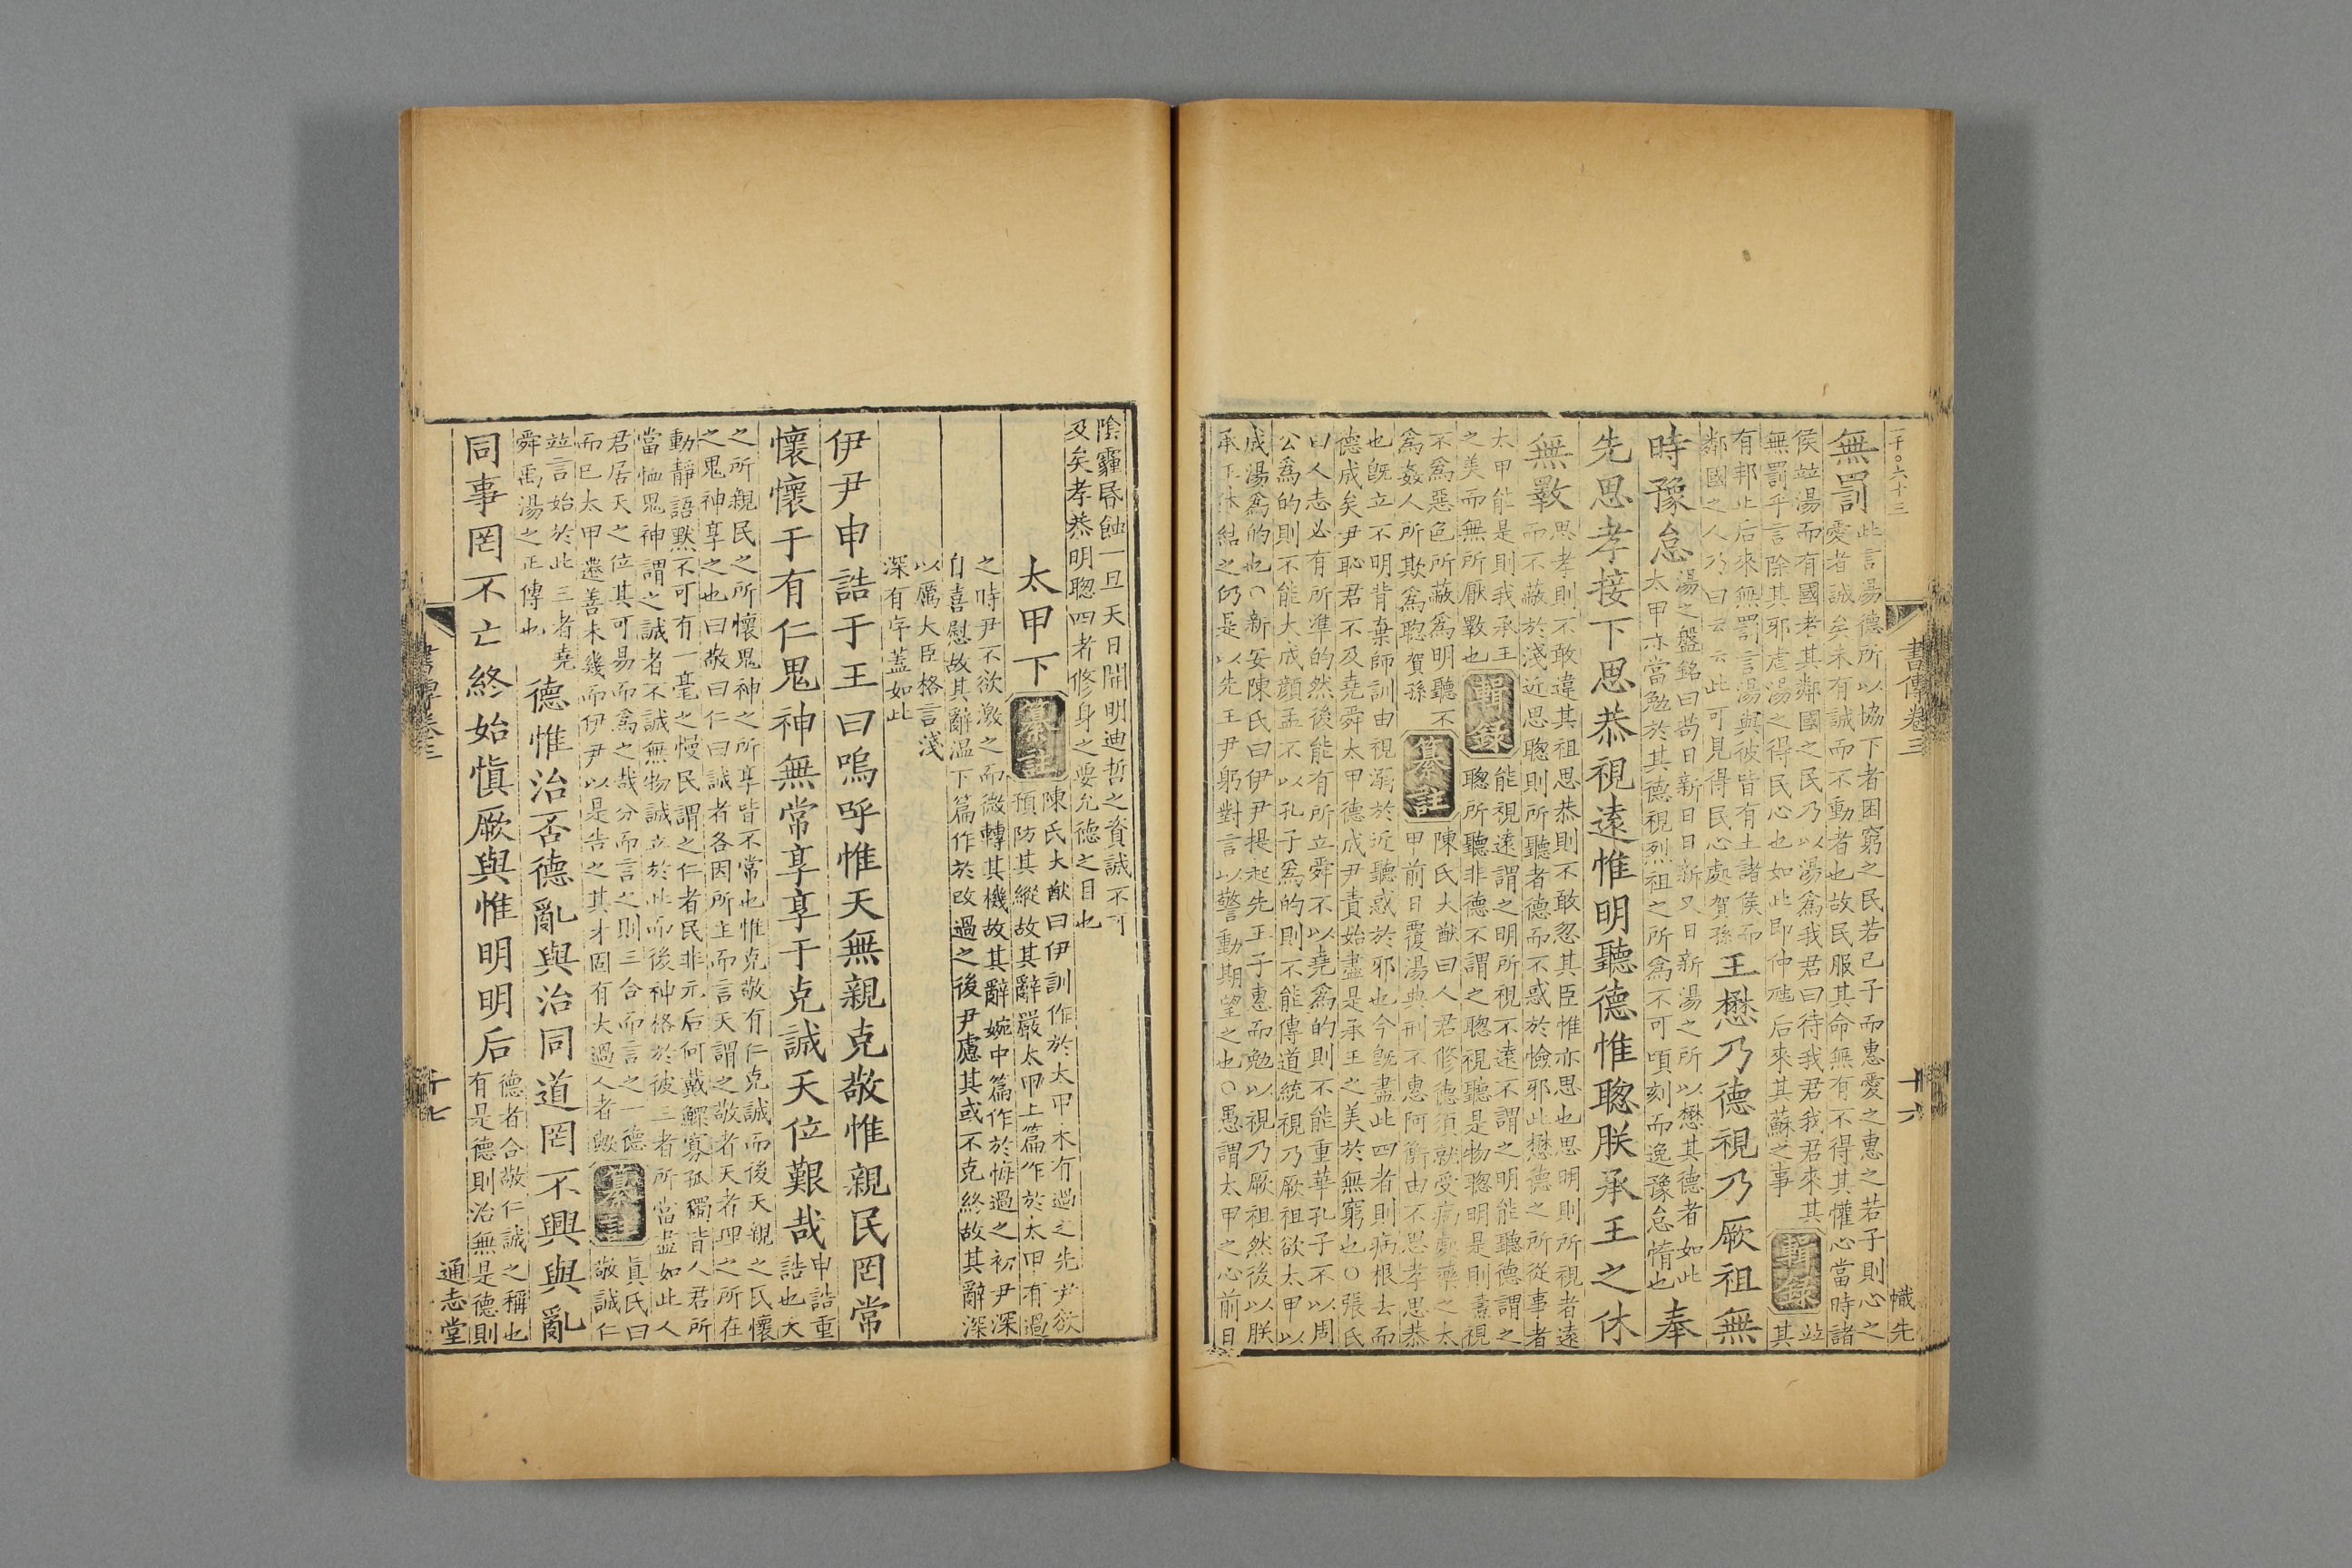 一千〇六十三
書傳卷三
十六
幟先
無罰
此言湯德所以協下者困窮之民若己子而惠愛之惠之若子則心之
愛者誠矣未有誠而不動者也故民服其命無有不得其懽心當時諸
侯竝湯而有國者其鄰國之民乃以湯為我君曰待我君我君來其
無罰乎言除其邪虐湯之得民心也如此即仲虺后來其蘇之事
輯錄
竝其
有邦止后來無罰言湯與彼皆有土諸侯而
鄰國之人乃曰云云此可見得民心處賀孫
王懋乃德視乃厥祖無
時豫怠
湯之盤銘曰苟日新日日新又日新湯之所以懋其德者如此
太甲亦當勉於其德視烈祖之所為不可頃刻而逸豫怠惰也
奉
先思孝接下思恭視遠惟明聽德惟聰朕承王之休
無斁
思孝則不敢違其祖思恭則不敢忽其臣惟亦思也思明則所視者遠
而不蔽於淺近思聰則所聽者德而不惑於憸邪此懋德之所從事者
太甲能是則我承王
之美而無所厭斁也
輯錄
能視遠謂之明所視不遠不謂之明能聽德謂之
聰所聽非德不謂之聰視聽是物聰明是則書視
不為惡色所蔽為明聽不
為姦人所欺為聰賀孫
纂註
陳氏大猷曰人君修德須就受病處藥之太
甲前日覆湯典刑不惠阿衡由不思孝思恭
也旣立不明背棄師訓由視溺於近聽惑於邪也今旣盡此四者則病根去而
德成矣尹恥君不及堯舜太甲德成尹責始盡是承王之美於無窮也〇張氏
曰人志必有所準的然後能有所立舜不以堯為的則不能重華孔子不以周
公為的則不能大成顏孟不以孔子為的則不能傳道統視乃厥祖欲太甲以
成湯為的也〇新安陳氏曰伊尹提起先王子惠而勉以視乃厥祖然後以朕
承王休結之仍是以先王尹躬對言以警動期望之也〇愚謂太甲之心前日
陰霾昏蝕一旦天日開明迪哲之資誠不可
及矣孝恭明聰四者修身之要允德之目也
太甲下
纂註
陳氏大猷曰伊訓作於太甲未有過之先尹欲
預防其縱故其辭嚴太甲上篇作於太甲有過
之時尹不欲激之而微轉其機故其辭婉中篇作於悔過之初尹深
自喜慰故其辭溫下篇作於改過之後尹慮其或不克終故其辭深
以厲大臣格言淺
深有序蓋如此
伊尹申誥于王曰嗚呼惟天無親克敬惟親民罔常
懷懷于有仁鬼神無常享享于克誠天位艱哉
申誥重
誥也天
之所親民之所懷鬼神之所享皆不常也惟克敬有仁克誠而後天親之民懷
之鬼神享之也曰敬曰仁曰誠者各因所主而言天謂之敬者天者理之所在
動靜語黙不可有一毫之慢民謂之仁者民非元后何戴鰥寡孤獨皆人君所
當恤鬼神謂之誠者不誠無物誠立於此而後神格於彼三者所當盡如此人
君居天之位其可易而為之哉分而言之則三合而言之一德
而已太甲遷善未幾而伊尹以是告之其才固有大過人者歟
纂註
眞氏曰
敬誠仁
竝言始於此三者堯
舜禹湯之正傳也
德惟治否德亂與治同道罔不興與亂
同事罔不亡終始愼厥與惟明明后
德者合敬仁誠之稱也
有是德則治無是德則
書傳卷三
十七
通志堂